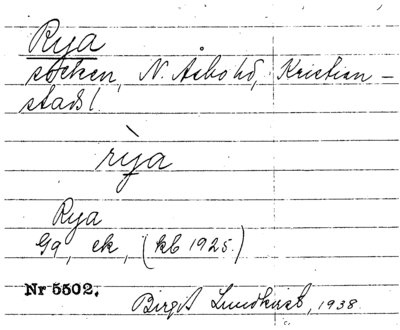 Rya
socken, N. Åsbo hd, Kristian-
stads l.
rỳa
Rya
Gg, ek, (kb 1925.)
Nr 5502.
Birgit Lundkvist, 1938